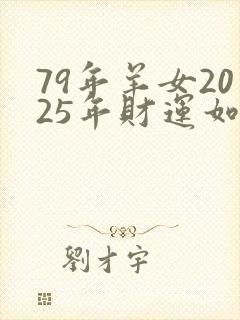 79年羊女20
25年財運如
劉才宇